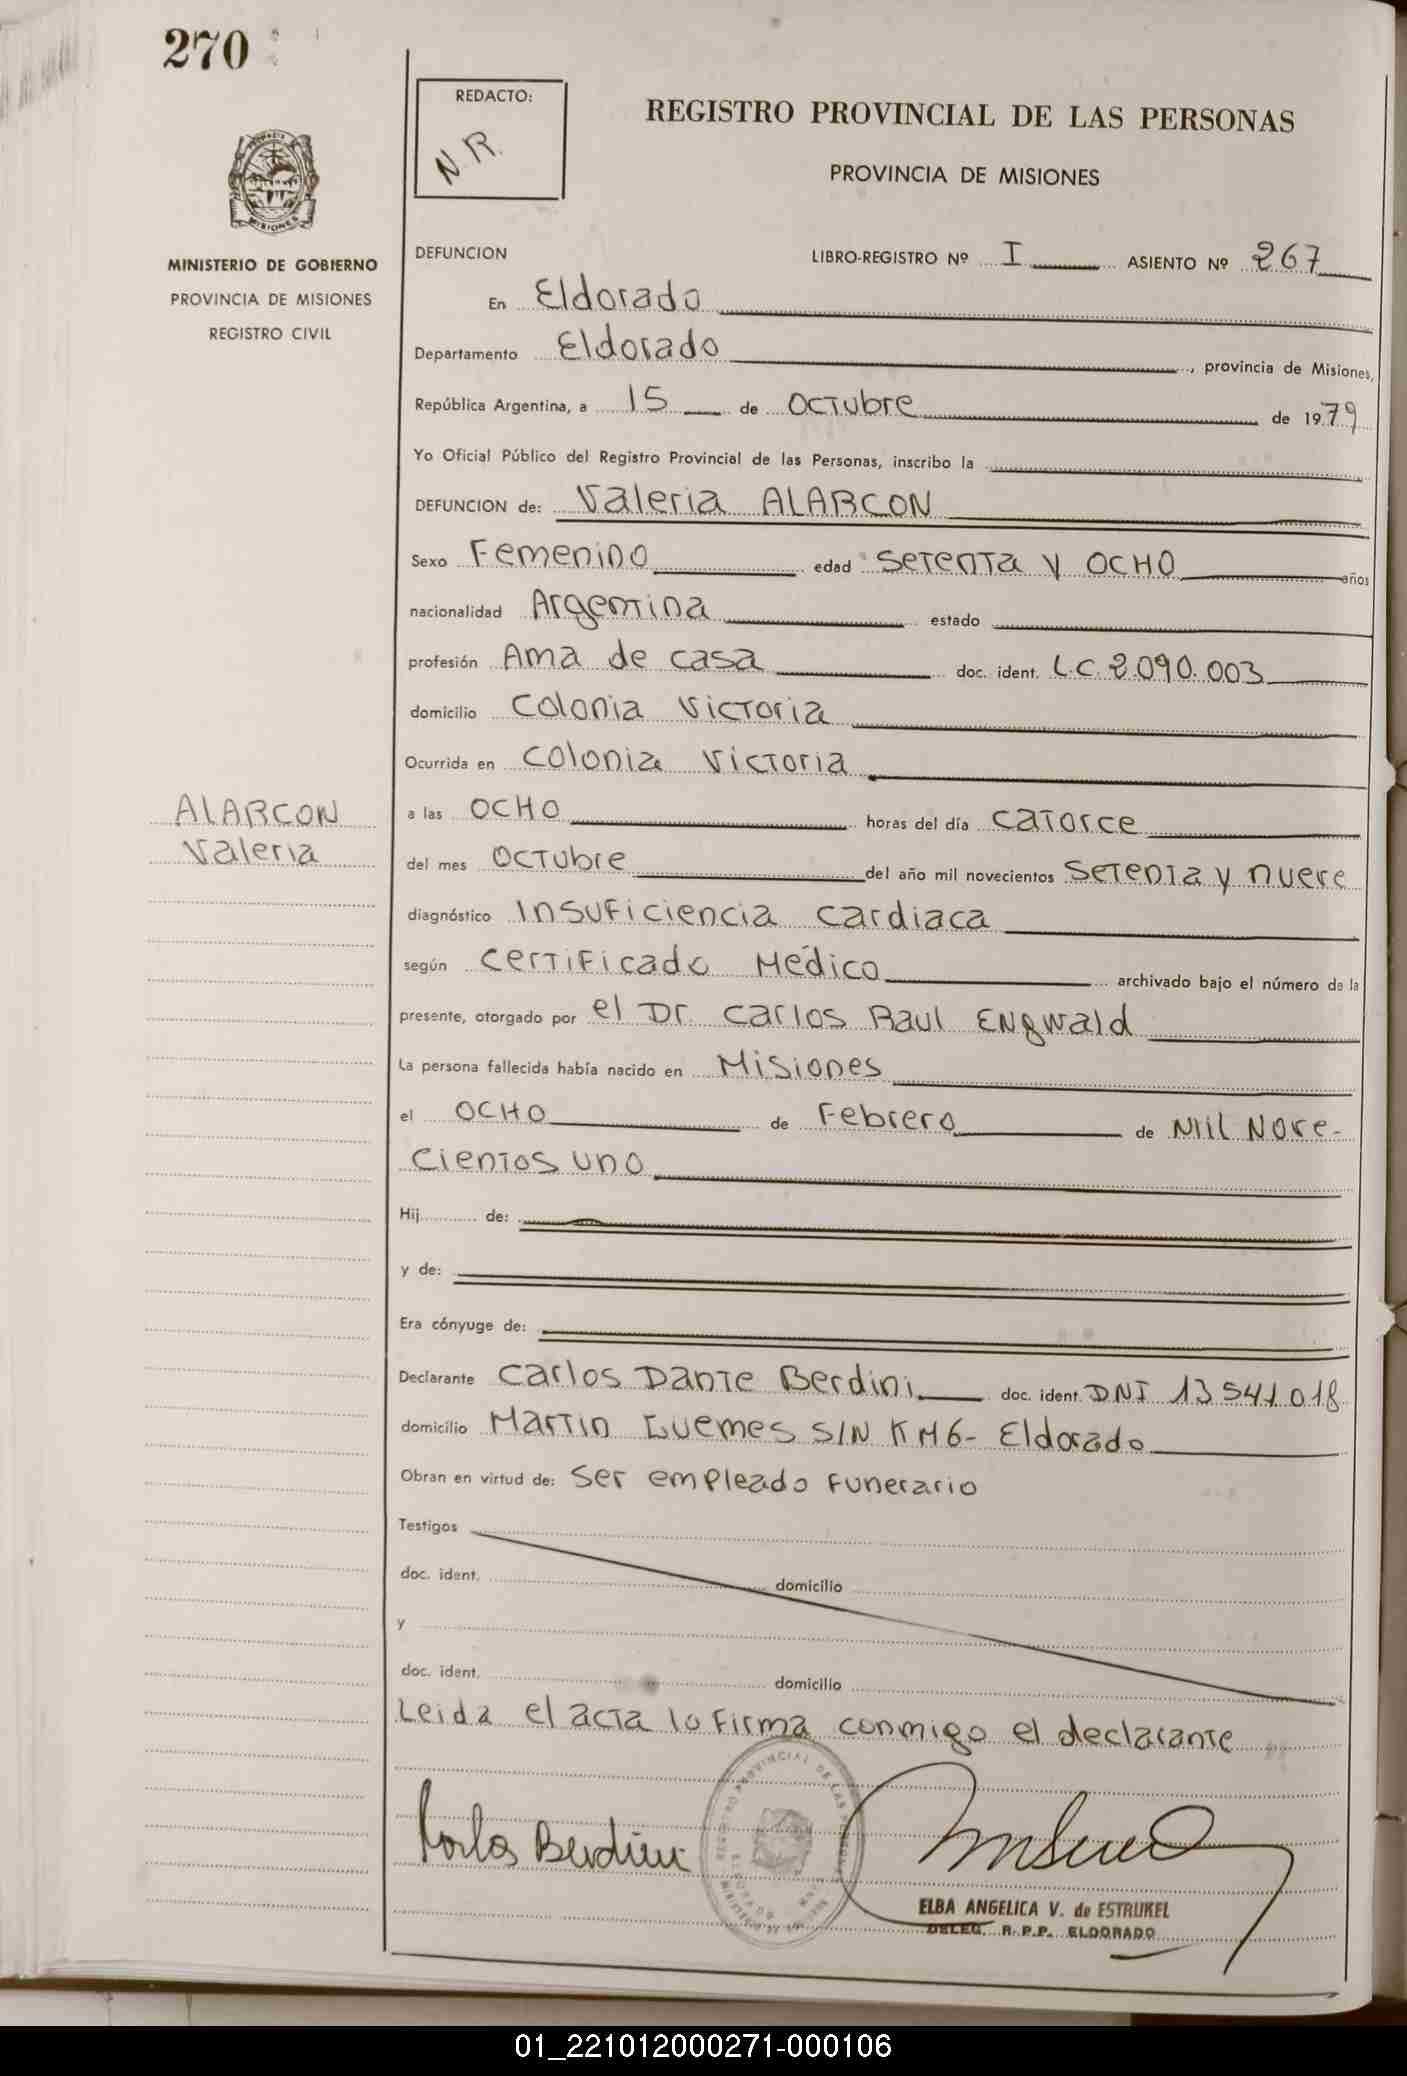 270
REDACTO:
N.R.
REGISTRO PROVINCIAL DE LAS PERSONAS
PROVINCIA DE MISIONES
MISIONES
MINISTERIO DE GOBIERNO
PROVINCIA DE MISIONES
REGISTRO CIVIL
DEFUNCION LIBRO-REGISTRO Nº I ASIENTO Nº 267
En Eldorado
Departamento Eldorado, provincia de Misiones,
República Argentina, a 15 de Octubre de 1979
Yo Oficial Público del Registro Provincial de las Personas, inscribo la
DEFUNCION de: Valeria ALARCON
Sexo Femenino edad Setenta y Ocho años
nacionalidad Argentina estado
profesión Ama de casa doc. ident. L.C. 2.090.003
domicilio Colonia Victoria
Ocurrida en Colonia Victoria
ALARCON
Valeria
a las OCHO horas del día Catorce
del mes Octubre del año mil novecientos Setenta y nueve
diagnóstico Insuficiencia Cardiaca
según Certificado Médico archivado bajo el número de la
presente, otorgado por el Dr. Carlos Raul Engwald
La persona fallecida había nacido en Misiones
el OCHO de Febrero de Mil Nove-
cientos uno
Hij de:
y de:
Era cónyuge de:
Declarante Carlos Dante Berdini doc. ident. DNI 13541018
domicilio Martin Guemes S/N KM6- Eldorado
Obran en virtud de: Ser empleado Funerario
Testigos
doc. ident. domicilio
y
doc. ident. domicilio
Leida el acta lo firma conmigo el declarante
Carlos Berdini
ELBA ANGELICA V. de ESTRUKEL
DELEG. R.P.P. ELDORADO
01_221012000271-000106